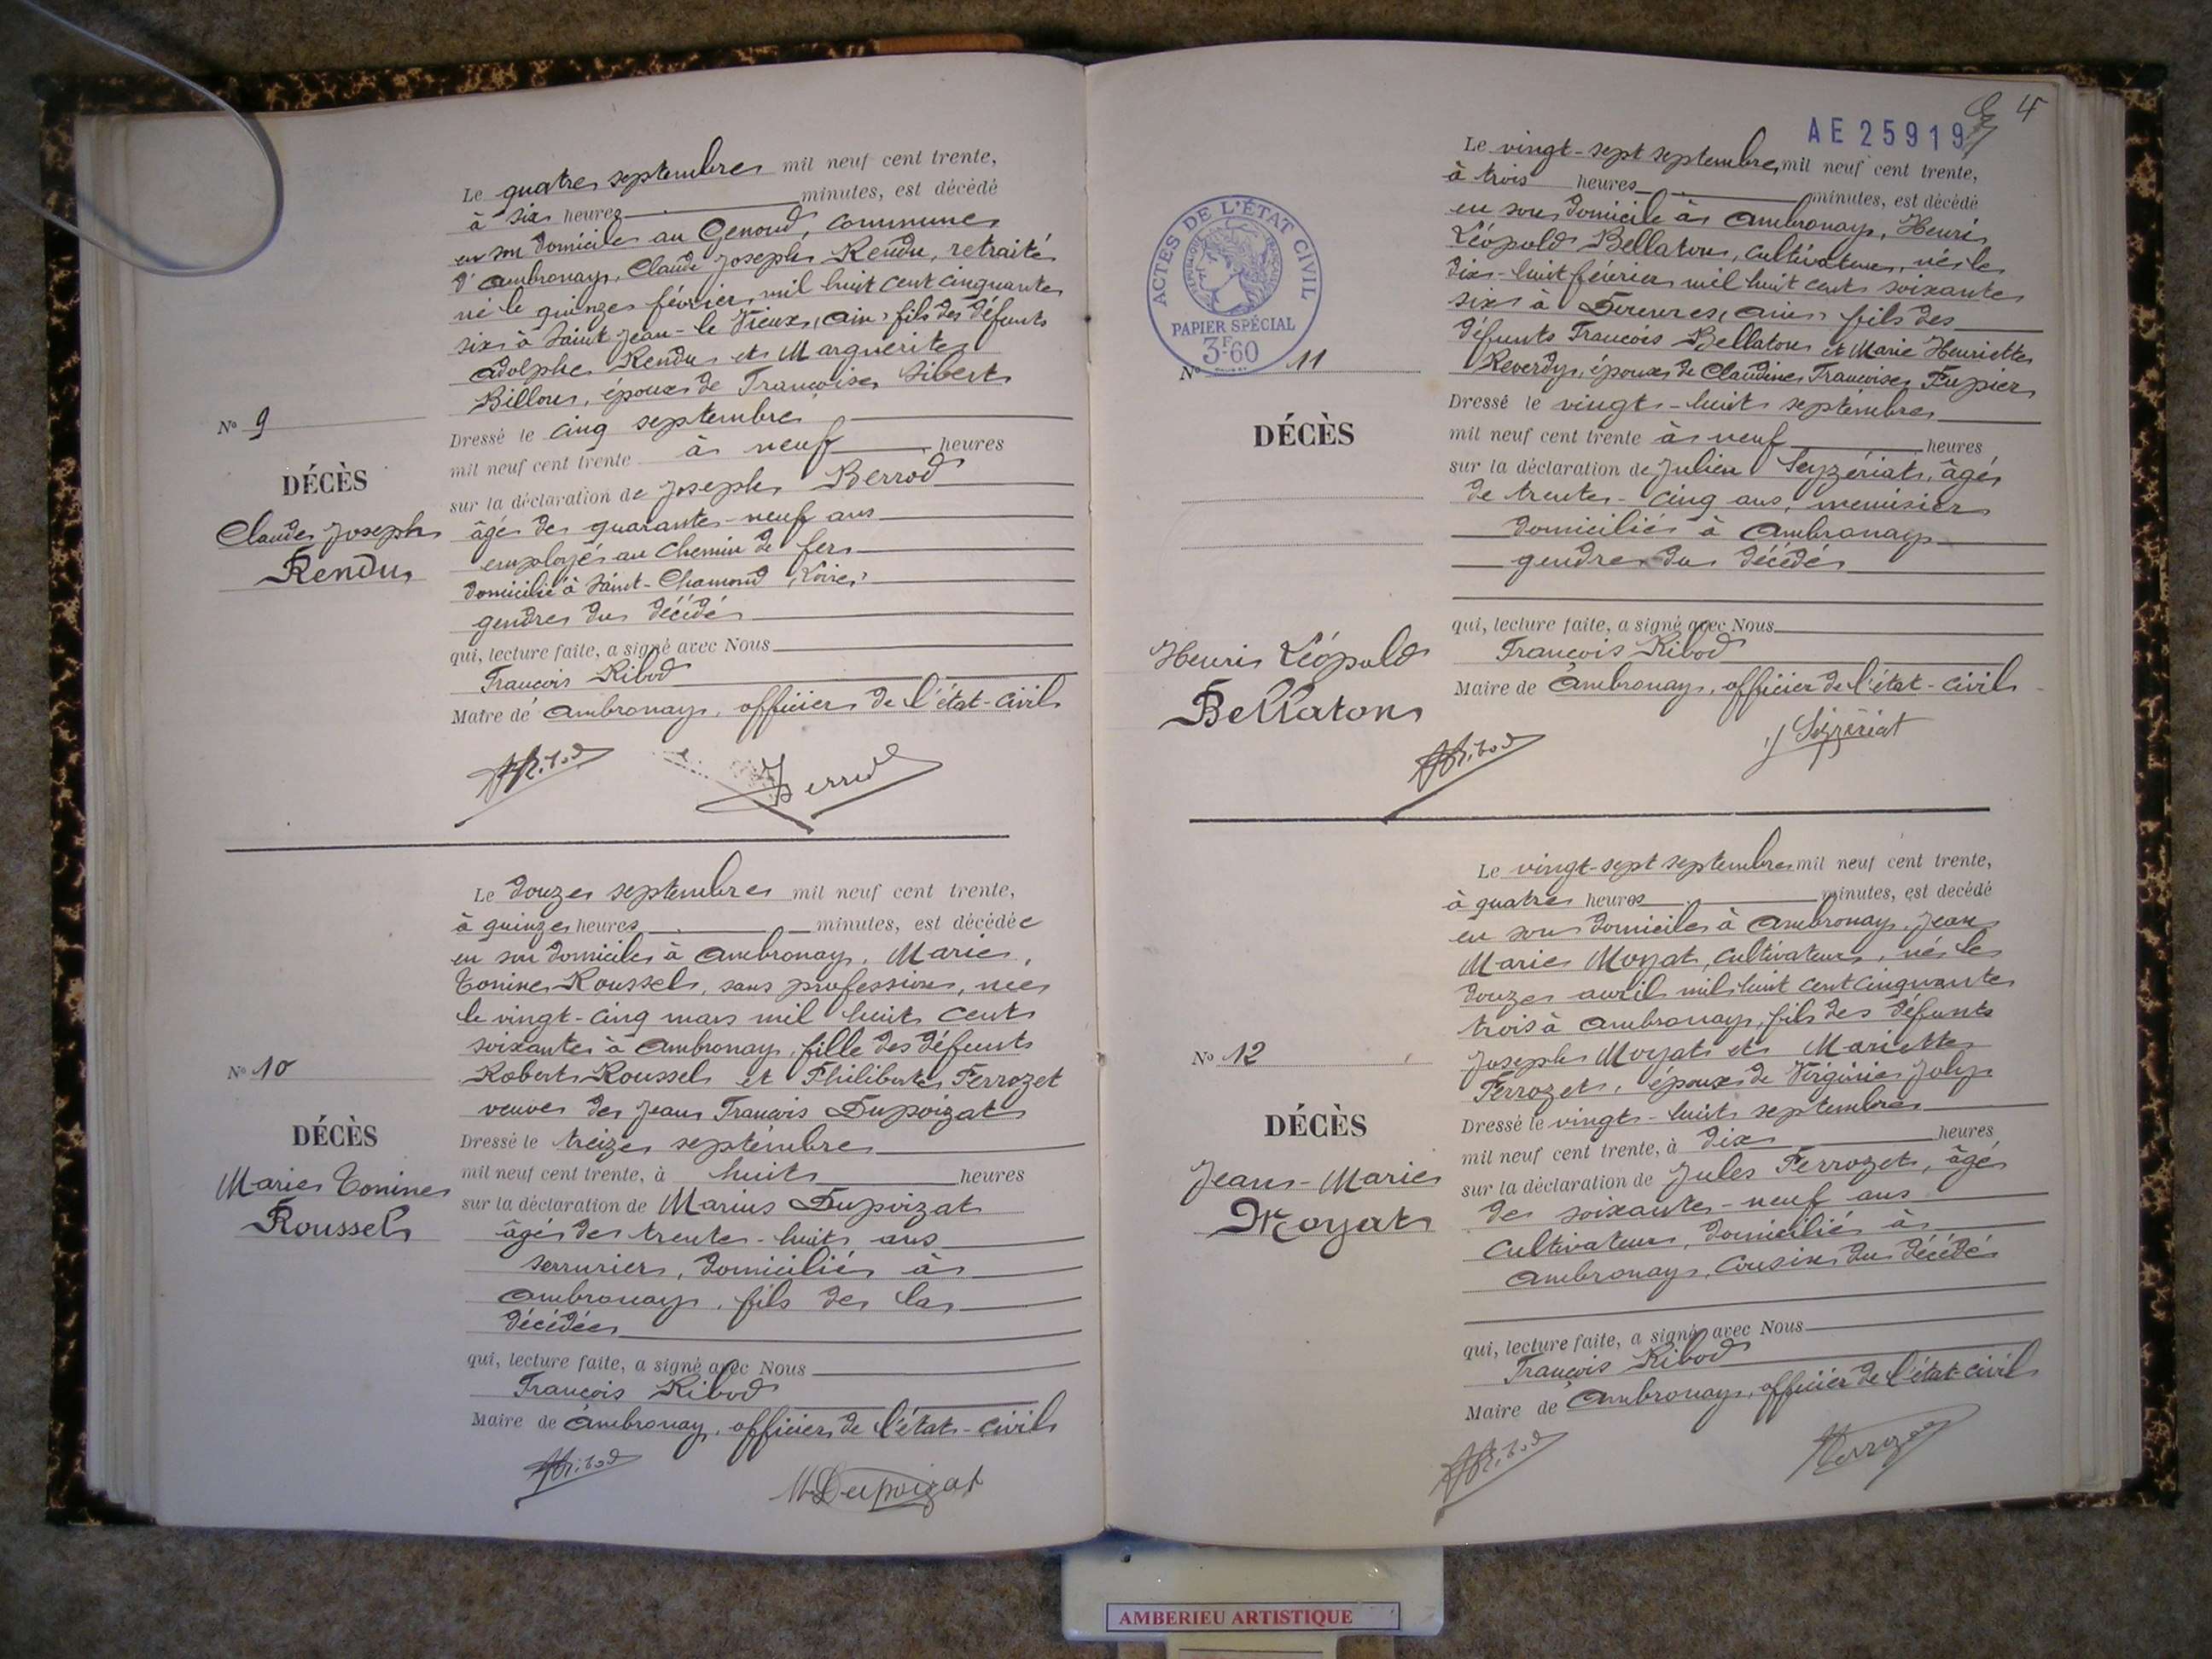 N° 9
DÉCÈS
Claude Joseph
Rendu
Le quatre septembre mil neuf cent trente,
à six heures minutes, est décédé
en son domicile au Genoud, commune
d'Ambronay, Claude Joseph Rendu, retraité
né le quinze février mil huit cent cinquante
six à Saint-Jean-le Vieux (Ain) fils des défunts
Adolphe Rendu et Marguerite
Billon, époux de Françoise Sibert
Dressé le cinq septembre
mil neuf cent trente à neuf heures
sur la déclaration de Joseph Berrod
âgé de quarante-neuf ans
employé au Chemin de fer
domicilié à Saint-Chamond (Loire)
gendre du décédé
qui, lecture faite, a signé avec Nous
François Ribod
Maire de Ambronay, officier de l'état-civil
Ribod
Berrod
N° 10
DÉCÈS
Marie Tonine
Roussel
Le douze septembre mil neuf cent trente,
à quinze heures minutes, est décédée
en son domicile à Ambronay, Marie,
Tonine Roussel, sans profession, née
le vingt-cinq mars mil huit cent
soixante à Ambronay, fille des défunts
Robert Roussel et Philiberte Ferrozet
veuve de Jean François Dupoizat
Dressé le treize septembre
mil neuf cent trente, à huit heures
sur la déclaration de Marius Dupoizat
âgé de trente-huit ans
serrurier, domicilié à
Ambronay, fils de la
décédée
qui, lecture faite, a signé avec Nous
François Ribod
Maire de Ambronay, officier de l'état-civil
Ribod
M Dupoizat
4
AE 25919
ACTES DE L'ÉTAT CIVIL
RÉPUBLIQUE FRANÇAISE
PAPIER SPÉCIAL
3F.60
N° 11
DÉCÈS
Henri Léopold
Bellaton
Le vingt-sept septembre mil neuf cent trente,
à trois heures minutes, est décédé
en son domicile à Ambronay, Henri
Léopold Bellaton, cultivateur, né le
dix-huit février mil huit cent soixante
six à (Ain) fils des
défunts François Bellaton et Marie Henriette
Reverdy, époux de Claudine Françoise Fupier
Dressé le vingt-huit septembre
mil neuf cent trente à neuf heures
sur la déclaration de Julien Seyzériat, âgé
de trente-cinq ans, menuisier
domicilié à Ambronay
gendre du décédé
qui, lecture faite, a signé avec Nous
François Ribod
Maire de Ambronay, officier de l'état-civil
Ribod
J Seyzériat
N° 12
DÉCÈS
Jean-Marie
Moyat
Le vingt-sept septembre mil neuf cent trente,
à quatre heures minutes, est decédé
en son domicile à Ambronay, Jean
Marie Moyat, cultivateur, né le
douze avril mil huit cent cinquante
trois à Ambronay, fils des défunts
Joseph Moyat et Mariette
Ferrozet, époux de Virginie Joly
Dressé le vingt-huit septembre
mil neuf cent trente, à dix heures
sur la déclaration de Jules Ferrozet, âgé
de soixante-neuf ans
cultivateur, domicilié à
Ambronay, cousin du décédé
qui, lecture faite, a signé avec Nous
François Ribod
Maire de Ambronay, officier de l'état-civil
Ribod
Ferrozet
AMBERIEU ARTISTIQUE